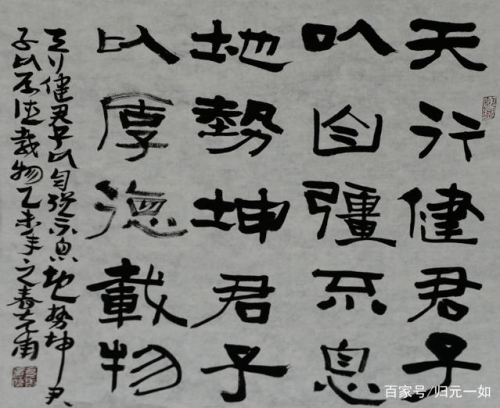 天行健君子
以自彊不息
地勢坤君子
以厚德載物
天行健君子以自强不息地势坤君
子以厚德載物乙未年之春
百家号/归元一如